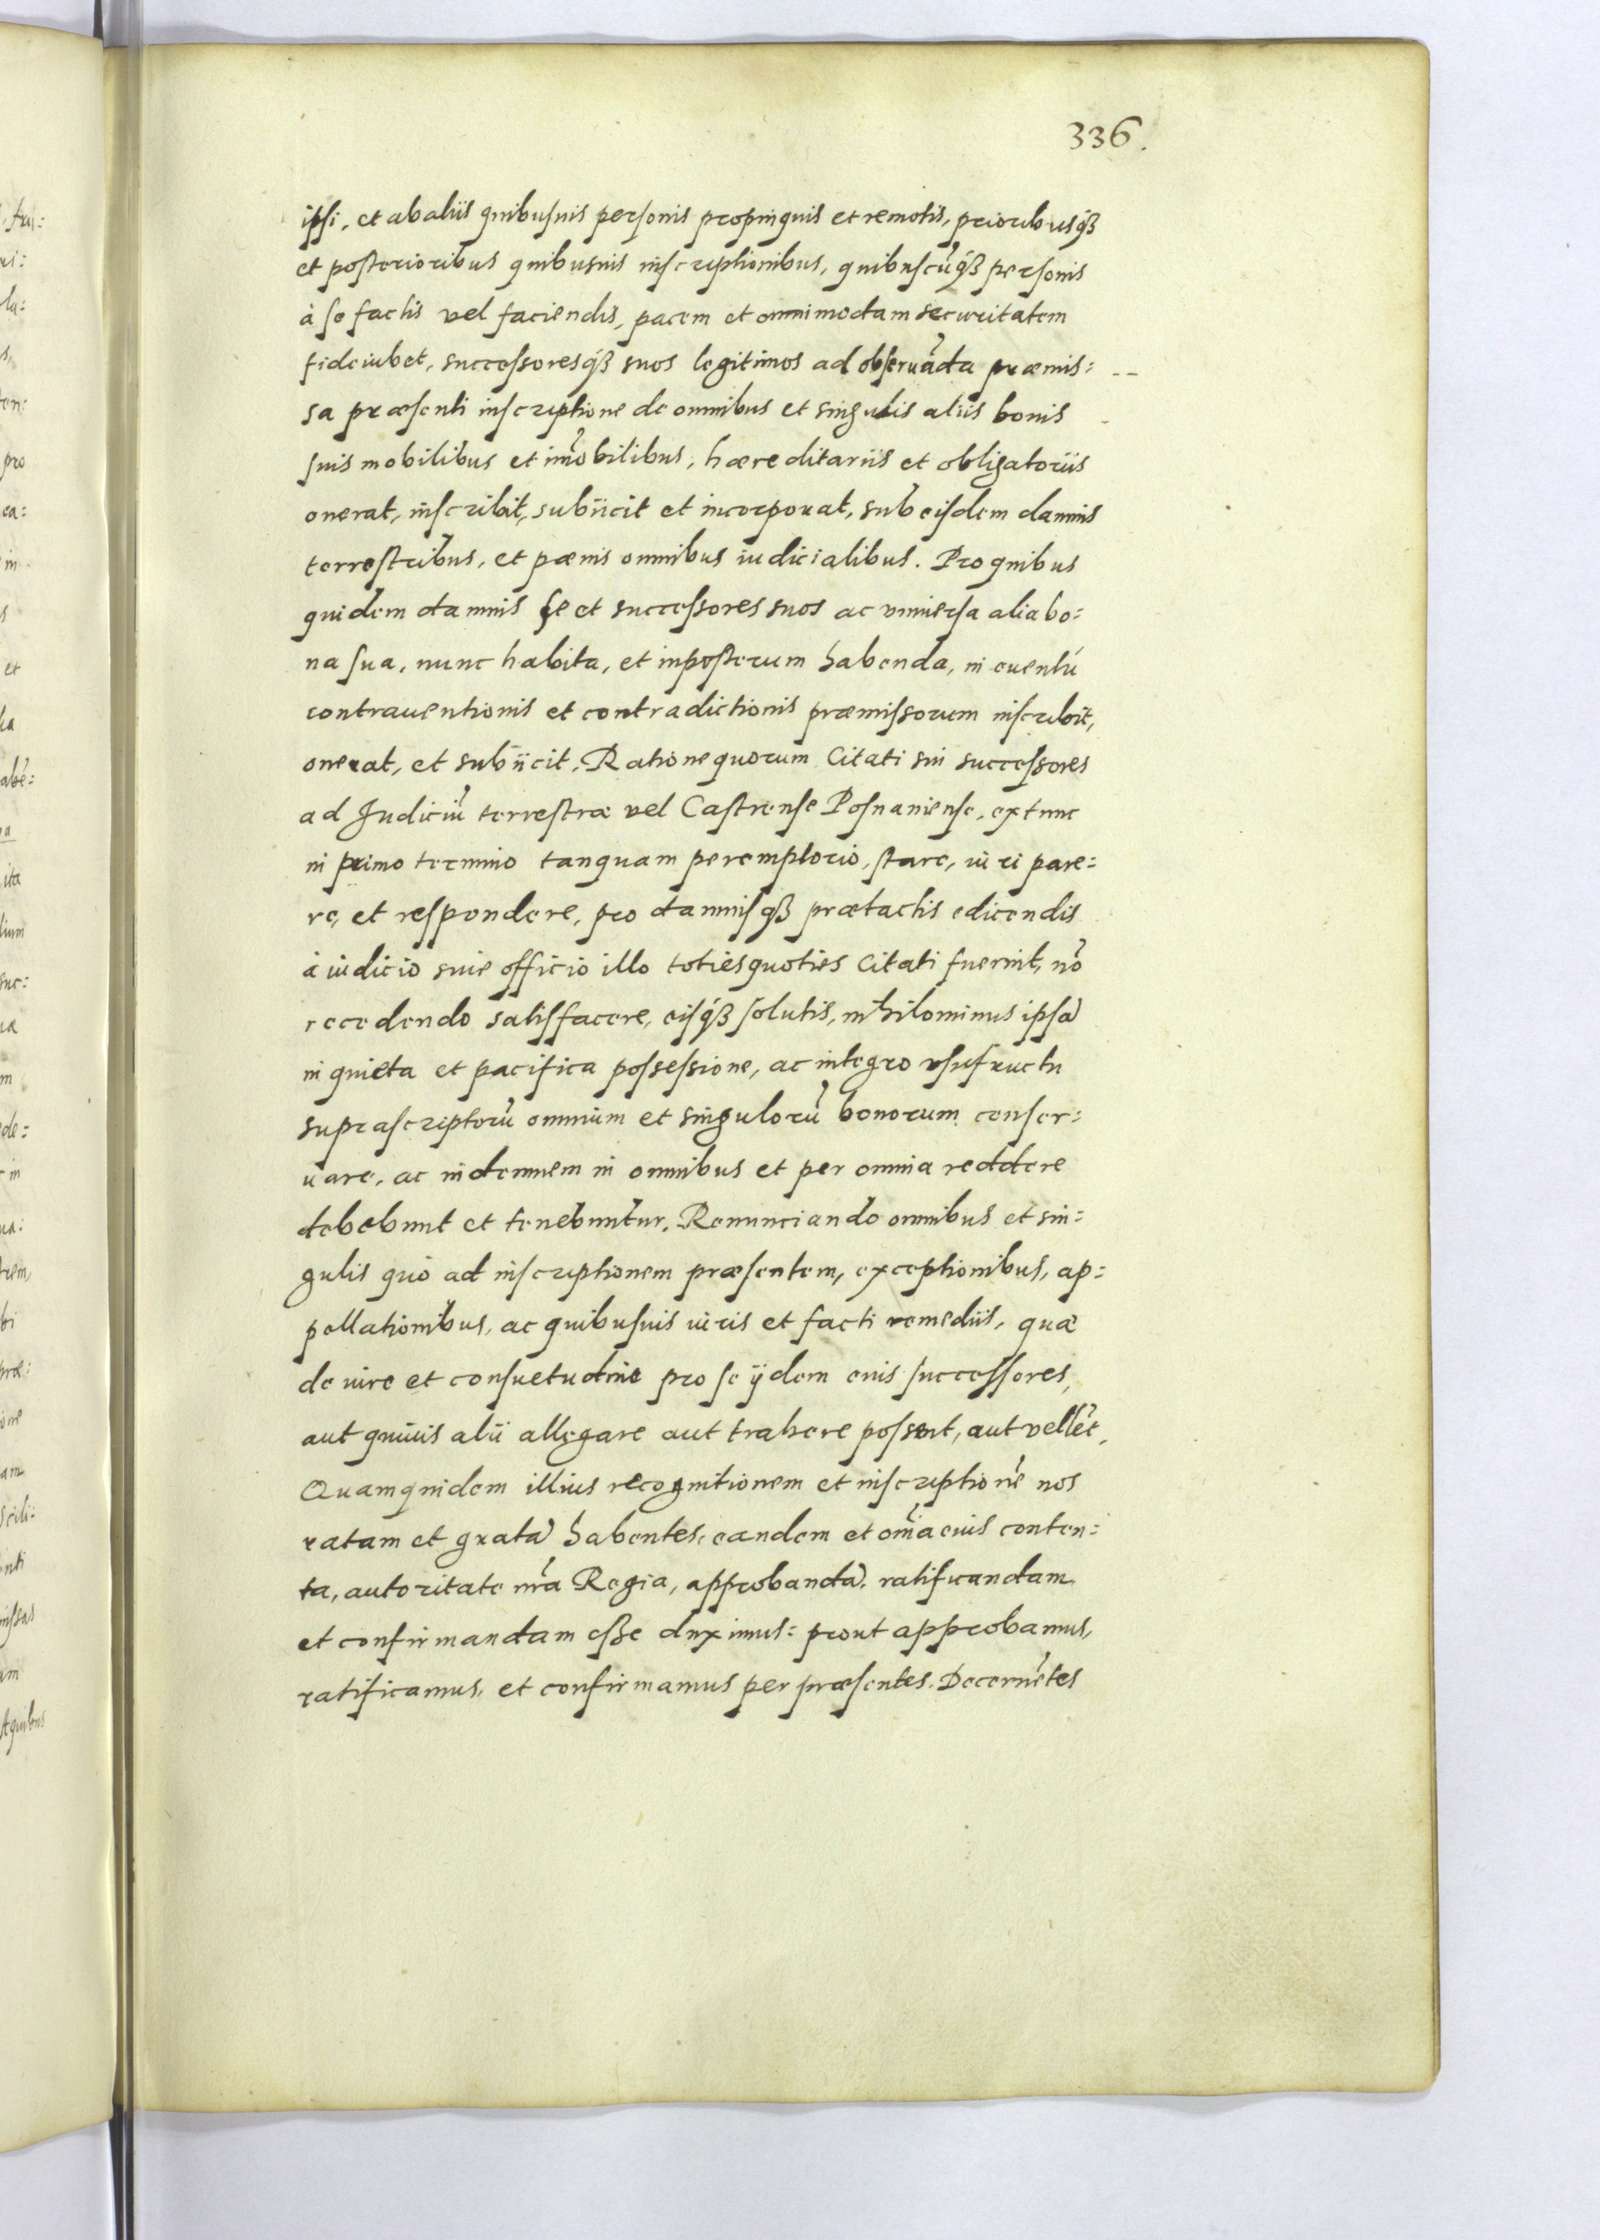 336.
ipsi, et ab aliis quibusuis personis propinquis et remotis, prioribusq́ꝫ
et posterioribus quibusuis inscriptionibus, quibuscũq́ꝫ personis
à se factis vel faciendis, pacem et omnimodam securitatem
fideiubet, successoresq́ꝫ suos legitimos ad obseruãda præmis:
sa præsenti inscriptione de omnibus et singulis aliis bonis
suis mobilibus et imõbilibus, hæreditariis et obligatoriis
onerat, inscribit, subiicit et incorporat, sub eisdem damnis
terrestribus, et pænis omnibus iudicialibus. Pro quibus
quidem damnis se et successores suos ac vniuersa alia bo:
na sua, nunc habita, et inposterum habenda, in euentú
contrauentionis et contradictionis præmissorum inscribit,
onerat, et subiicit. Ratione quorum Citati sui successores
ad Judiciũ terrestræ vel Castrense Posnaniense, extunc
in primo termino tanquam peremptorio, stare, iuri pare:
re, et respondere, pro damnisq́ꝫ prætactis edicendis
à iudicio siue officio illo toties quoties Citati fuerint, nõ
recedendo satisfacere, eisq́ꝫ solutis, nihilominus ipsã
in quieta et pacifica possessione, ac integro vsufructu
suprascriptorũ omnium et singulorũ bonorum conser:
uare, ac indemnem in omnibus et per omnia reddere
debebunt et tenebuntur. Renunciando omnibus et sin:
gulis quò ad inscriptionem præsentem, exceptionibus, ap:
pellationibus, ac quibusuis iuris et facti remediis, quæ
de iure et consuetudine pro se ÿdem euis successores,
aut quiuis alii allegare aut trahere possent, aut vellẽt.
Quamquidem illius recognitionem et inscriptionẽ nos
ratam et gratã habentes, eandem et om̃a eius conten:
ta, autoritate nr̃a Regia, approbandã, ratificandam
et confirmandam eße duximus: prout approbamus,
ratificamus, et confirmamus per præsentes. Decernẽtes